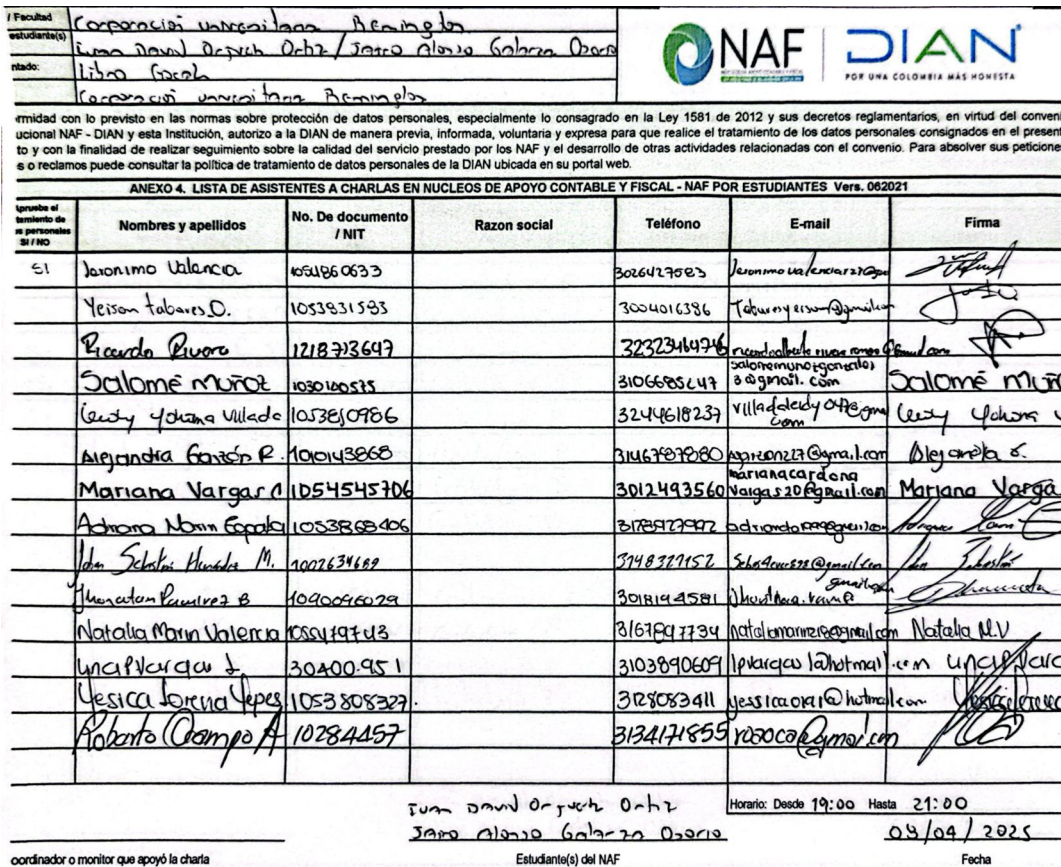 / Facultad Corporación universitaria Remington
estudiante(s) Ivan David Orjuela Ortiz / Jairo Alonso Galarza Osorio
ntado: Libro fiscal
Corporación universitaria Remington
NAF
DIAN
POR UNA COLOMBIA MÁS HONESTA
rmidad con lo previsto en las normas sobre protección de datos personales, especialmente lo consagrado en la Ley 1581 de 2012 y sus decretos reglamentarios, en virtud del conveni
ucional NAF - DIAN y esta Institución, autorizo a la DIAN de manera previa, informada, voluntaria y expresa para que realice el tratamiento de los datos personales consignados en el present
to y con la finalidad de realizar seguimiento sobre la calidad del servicio prestado por los NAF y el desarrollo de otras actividades relacionadas con el convenio. Para absolver sus peticione
s o reclamos puede consultar la política de tratamiento de datos personales de la DIAN ubicada en su portal web.
ANEXO 4. LISTA DE ASISTENTES A CHARLAS EN NUCLEOS DE APOYO CONTABLE Y FISCAL - NAF POR ESTUDIANTES Vers. 062021
Aprueba el tamiento de s personales SI / NO Nombres y apellidos No. De documento / NIT Razon social Teléfono E-mail Firma
SI Jeronimo Valencia 1054860633 3026427583
Yeison tabares D. 1053831593 3004016386
Ricardo Rivero 1218713647
Salomé Muñoz 1030100575 3106685647 salomemunozgonzalez3@gmail.com Salomé Muñ
Leidy Yohana Villada 1053850986 3244618237 Leidy Yohana V
Alejandra Garzón R. 1010143868 3146787880 agarzon227@gmail.com Alejandra G.
Mariana Vargas C 1054545706 3012493560 marianacardona vargas20@gmail.com Mariana Varga
Adriana Marin España 1053868406 3178927992
1002634689 3148327152
Jhonatan Ramirez B 1090096029 3018194581
Natalia Marin Valencia 3167897734 nataliamarin218@gmail.com Natalia M.V
30400.951 3103890609 lpvargas1@hotmail.com
Yesica Lorena Yepes 1053808327. 3128083411 yessicaorai@hotmail.com
Roberto Ocampo A 10284457 3134171855 rosoca@gmail.com
Ivan David Orjuela Ortiz Horario: Desde 19:00 Hasta 21:00
Jairo Alonso Galarza Osorio 09/04/2025
oordinador o monitor que apoyó la charla Estudiante(s) del NAF Fecha